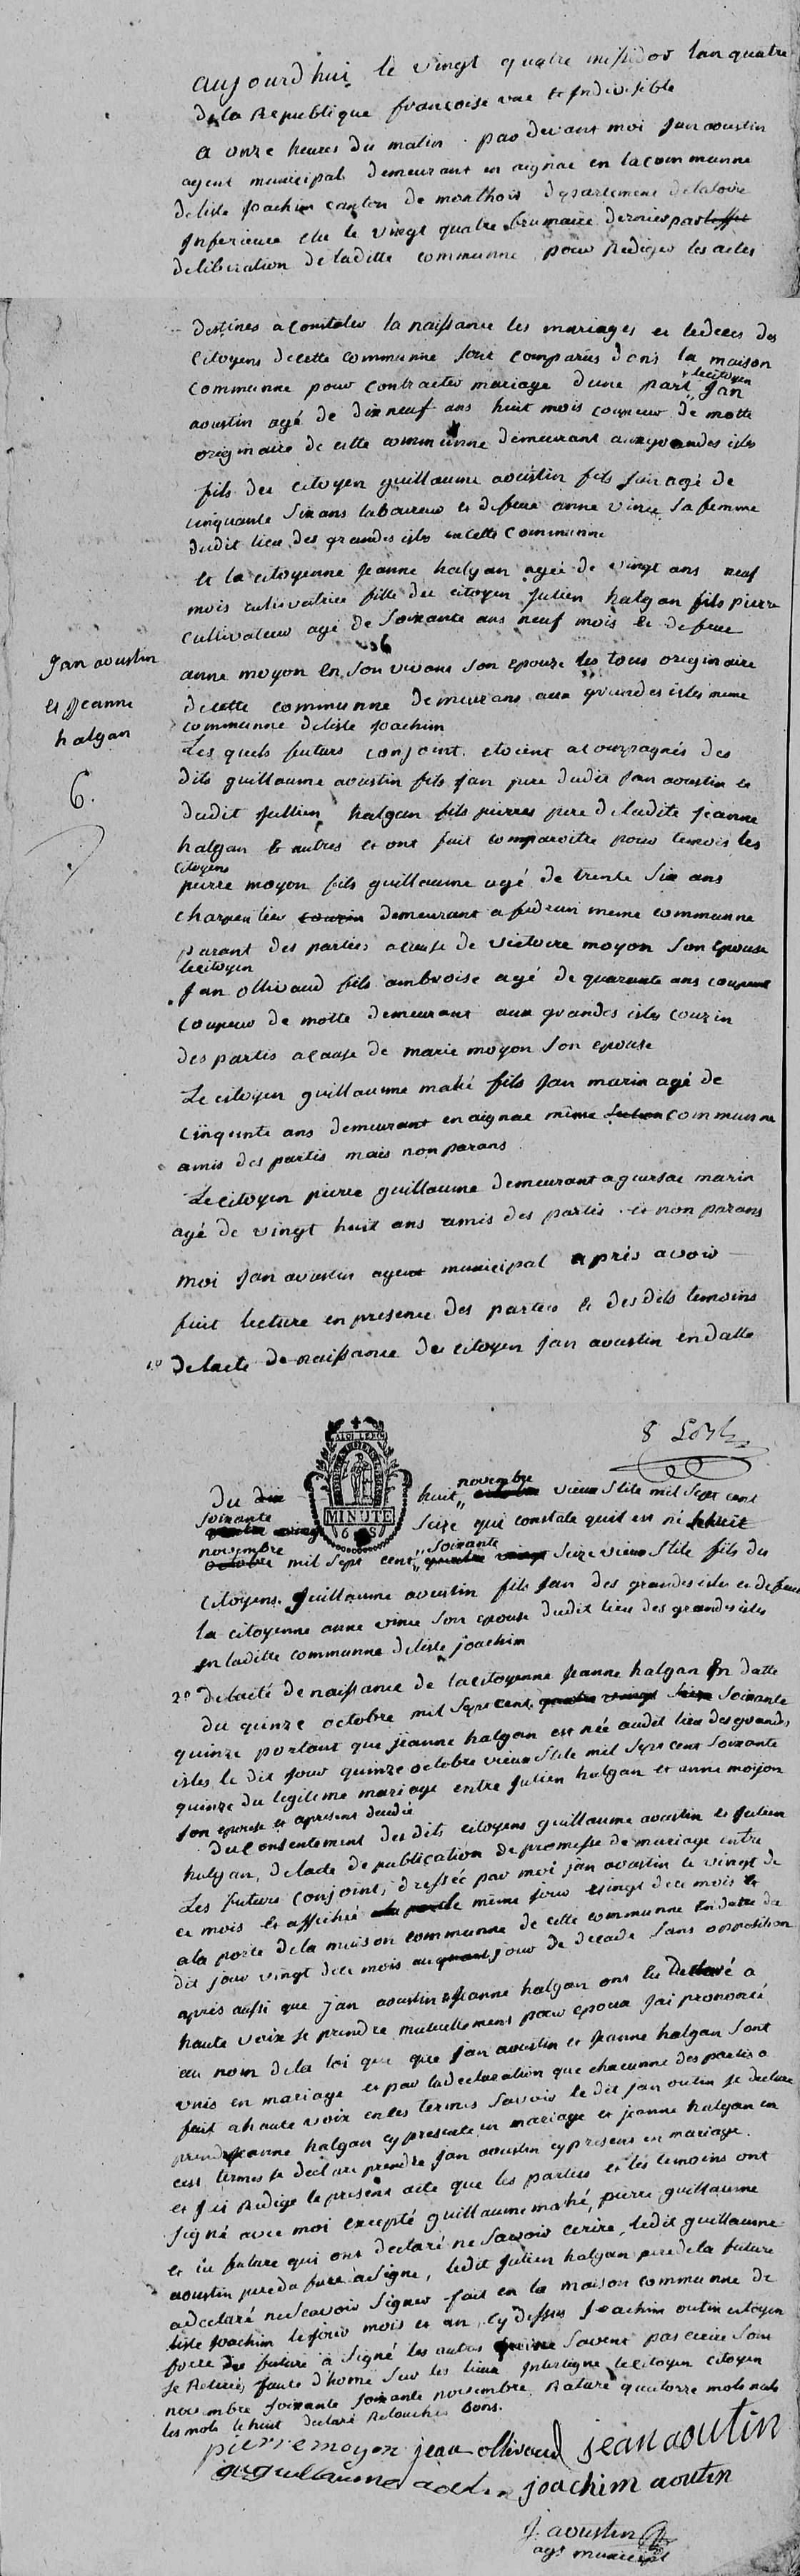 aujourd'hui le vingt quatre messidor lan quatre
de la Republique francoise une et indivisible
a onze heures du matin . par devant moi Jan aoustin
agent municipal demeurant en aignac en la communne
delisle Joachim canton de monthois departement de la loire
Inferieure elu le vingt quatre brumaire dernier par
deliberation de laditte communne pour Rediger les actes
destines a constater la naissance les mariages et le deces des
Citoyens de cette communne sont comparus dans la maison
communne pour contracter mariage d'une part, le citoyen Jan
aoustin agé de dix neuf ans huit mois coupeur de motte
originaire de cette communne demeurant aux grandes isles
fils du citoyen guillaume aoustin fils Jan agé de
cinquante six ans laboureur et defeue anne vince sa femme
dudit lieu des grandes isles en cette communne
et la citoyenne Jeanne halgan agée de vingt ans neuf
mois cultivatrice fille du citoyen Julien halgan fils pierre
cultivateur agé de soixante ans neuf mois et de feue
anne moyon en son vivant son epouze tous originaire
de cette communne demeurans aux grandes isles meme
communne delisle Joachim
Jan aoustin
et Jeanne
halgan
6.
Les quels futurs conjoint etoient acompagnés des
dits guillaume aoustin fils Jan pere dudit Jan aoustin et
dudit Jullien halgan fils pierre pere de ladite Jeanne
halgan & autres et ont fait comparoitre pour temois les
citoyens
pierre moyon fils guillaume agé de trente six ans
charpentier demeurant a fedrun meme communne
parant des parties acause de victoire moyon son epouse
le citoyen
Jan ollivaud fils ambroise agé de quarante ans
coupeur de motte demeurant aux grandes isles couzin
des partis acause de marie moyon son epouse
Le citoyen guillaume mahé fils Jan marin agé de
cinquente ans demeurant en aignac même communne
amis des partis mais non parans
Le citoyen pierre guillaume demeurant a guersac marin
agé de vingt huit ans amis des partis et non parans
moi Jan aoustin agent municipal après avoir
fait lecture en presence des parties et des dits temoins
1o de lacte de naissance du citoyen Jan aoustin en datte
MINUTE
du huit novembre vieux stile mil sept cent
soixante seize qui constate quil est né le huit
novembre mil sept cent soixante seize vieux stile fils du
citoyens guillaume aoustin fils Jan des grandes isles et defeue
la citoyenne anne vince son epouse dudit lieu des grandes isles
en laditte communne delisle joachim
2o de lacte de naissance de la citoyenne Jeanne halgan En datte
du quinze octobre mil sept cent soixante
quinze portant que jeanne halgan est née audit lieu des grandes
isles le dit jour quinze octobre vieux stile mil sept cent soixante
quinze du legitime mariage entre Julien halgan et anne moyon
son epouse et apresent decedée
du consentement des dits citoyens guillaume aoustin et Julien
halgan, de lacte de publication de promesse de mariage entre
Les futurs conjoint, dressée par moi jan aoustin le vingt de
ce mois et affichée le même jour vingt de ce mois
a la porte de la maison communne de cette communne En datte du
dit jour vingt de ce mois au jour de decade sans opposition
après aussi que jan aoustin & Jeanne halgan ont Declaré a
haute voix se prendre mutuellement pour epoux Jai prononcé
au nom de la loi que que Jan aoustin et Jeanne halgan sont
unis en mariage et par la declaration que chacunne des partis a
fait a haute voix en ces termes savoir le dit jan outin se declare
prendre jeanne halgan cy presente en mariage et jeanne halgan en
cest termes se declare prendre Jan aoustin cy present en mariage.
et Jai Redigé le present acte que les parties et les temoins ont
signé avec moi excepté guillaume mahé, pierre guillaume
et la future qui ont declaré ne savoir ecrire, ledit guillaume
aoustin pere du futur a signé, ledit Julien halgan pere de la future
a declaré ne scavoir signer fait en la maison communne de
lisle Joachim le jour mois et an cy dessus Joachim outin citoyen
frere du future a signé les autres savent pas ecrire sont
se Retirés faute d'home sur les lieux Interligne le citoyen citoyen
novembre soixante soixante novembre, Raturé quatorze mots nuls
les mots le huit declaré Retouchés bons.
pierre moyon jean ollivaud jean aoutin
joachim aoutin
J. aoustin
agt municipal